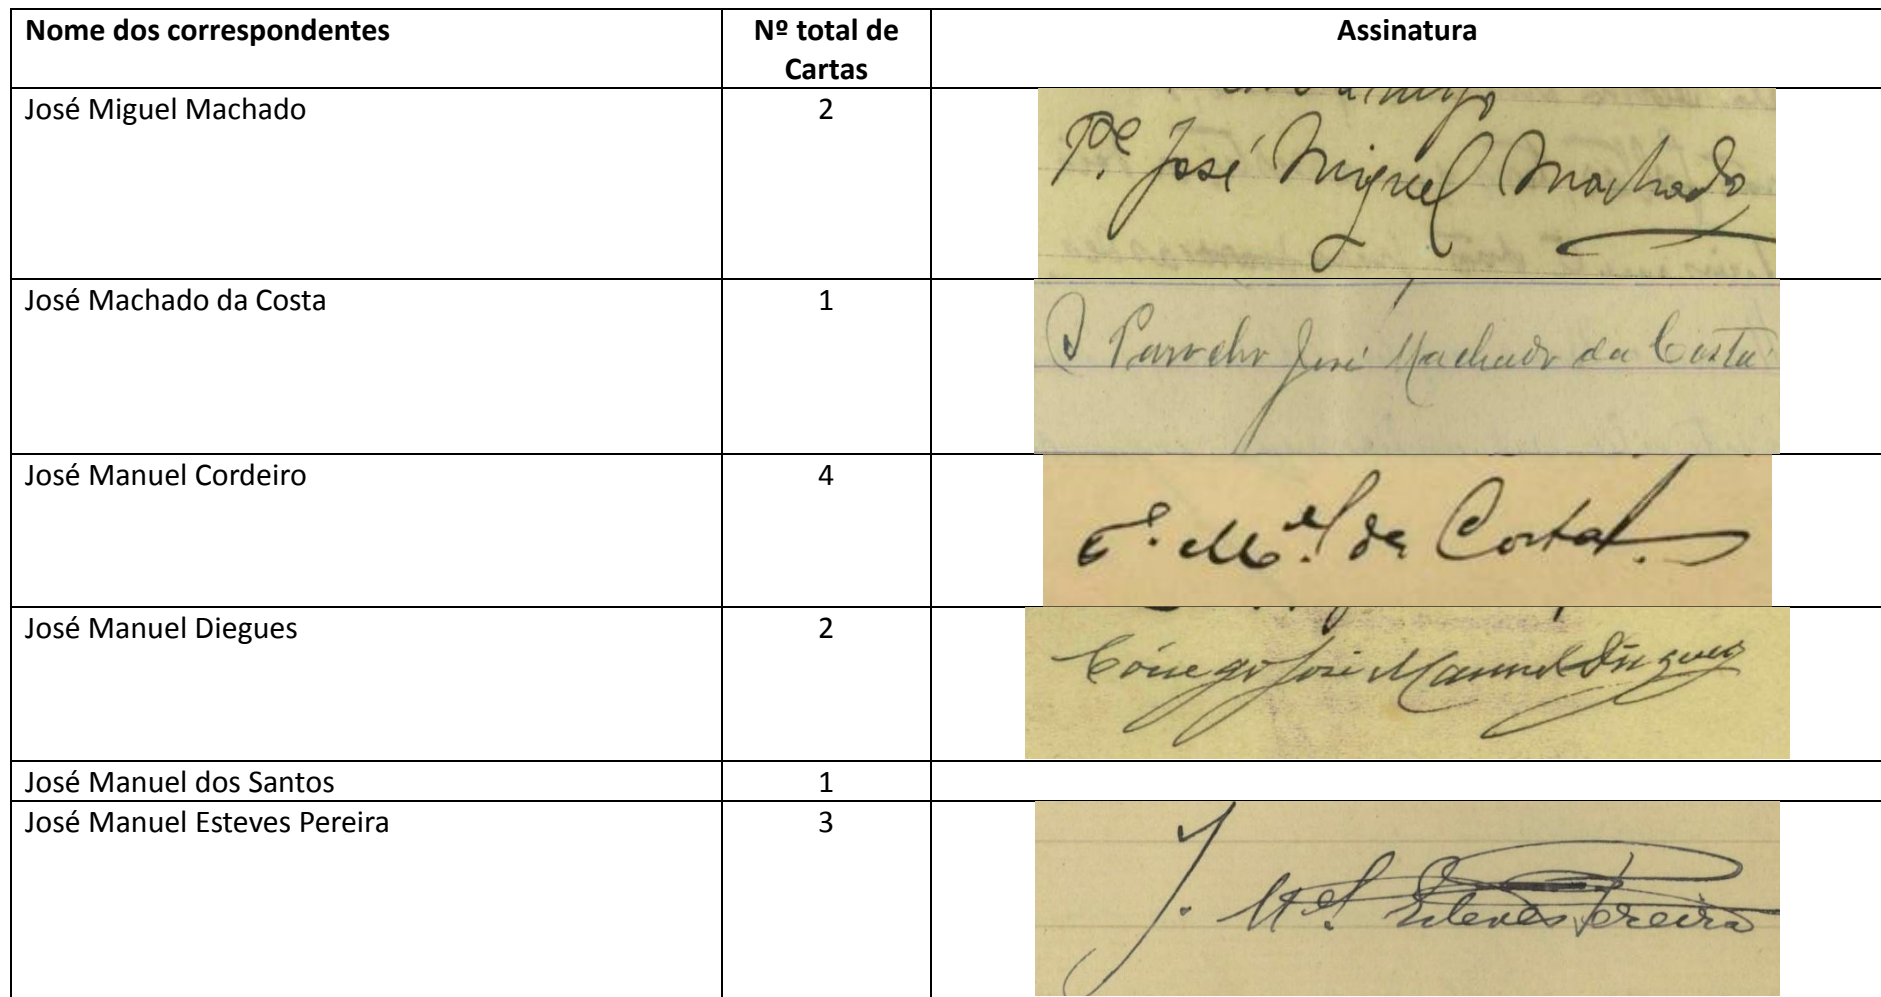 Nome dos correspondentes
Nº total de
Cartas
Assinatura
José Miguel Machado
2
Pe. José Miguel Machado
José Machado da Costa
1
O Parocho José Machado da Costa
José Manuel Cordeiro
4
Mel. da Costa
José Manuel Diegues
2
Cónego José Manuel Diegues
José Manuel dos Santos
1
José Manuel Esteves Pereira
3
J. Mel. Esteves Pereira